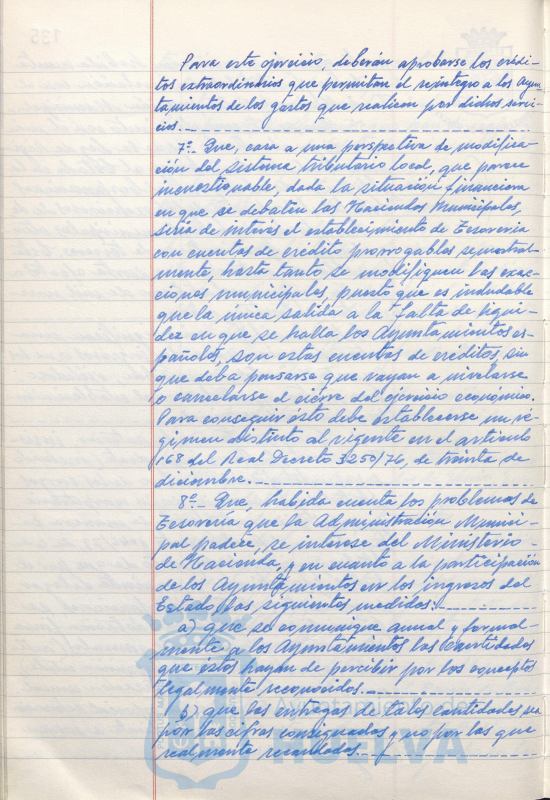 Para este ejercicio, deberán aprobarse los crédi-
tos extraordinarios que permitan el reintegro a los Ayun-
tamientos de los gastos que realicen por dichos servi-
cios.
7º.- Que, cara a una perspectiva de modifica-
ción del sistema tributario local, que parece
incuestionable, dada la situación financiera
en que se debaten las Haciendas Municipales,
sería de interés el establecimiento de Tesorería
con cuentas de crédito prorrogables semestral-
mente, hasta tanto se modifiquen las exac-
ciones municipales, puesto que es indudable
que la única salida a la falta de liqui-
dez en que se halla los Ayuntamientos es-
pañoles, son estas cuentas de créditos, sin
que deba pensarse que vayan a nivelarse
o cancelarse el cierre del ejercicio económico.
Para conseguir ésto debe establecerse un ré-
gimen distinto al vigente en el artículo
168 del Real Decreto 3250/76, de treinta de
diciembre.
8º.- Que, habida cuenta los problemas de
Tesorería que la Administración Munici-
pal padece, se interese del Ministerio
de Hacienda, y en cuanto a la participación
de los Ayuntamientos en los ingresos del
Estado, las siguientes medidas:
a) que se comunique anual y formal-
mente a los Ayuntamientos las cantidades
que éstos hayan de percibir por los conceptos
legalmente reconocidos.
b) que las entregas de tales cantidades sea
por las cifras consignadas y no por las que
realmente recaudadas.
Ayuntamiento de
HUELVA
135